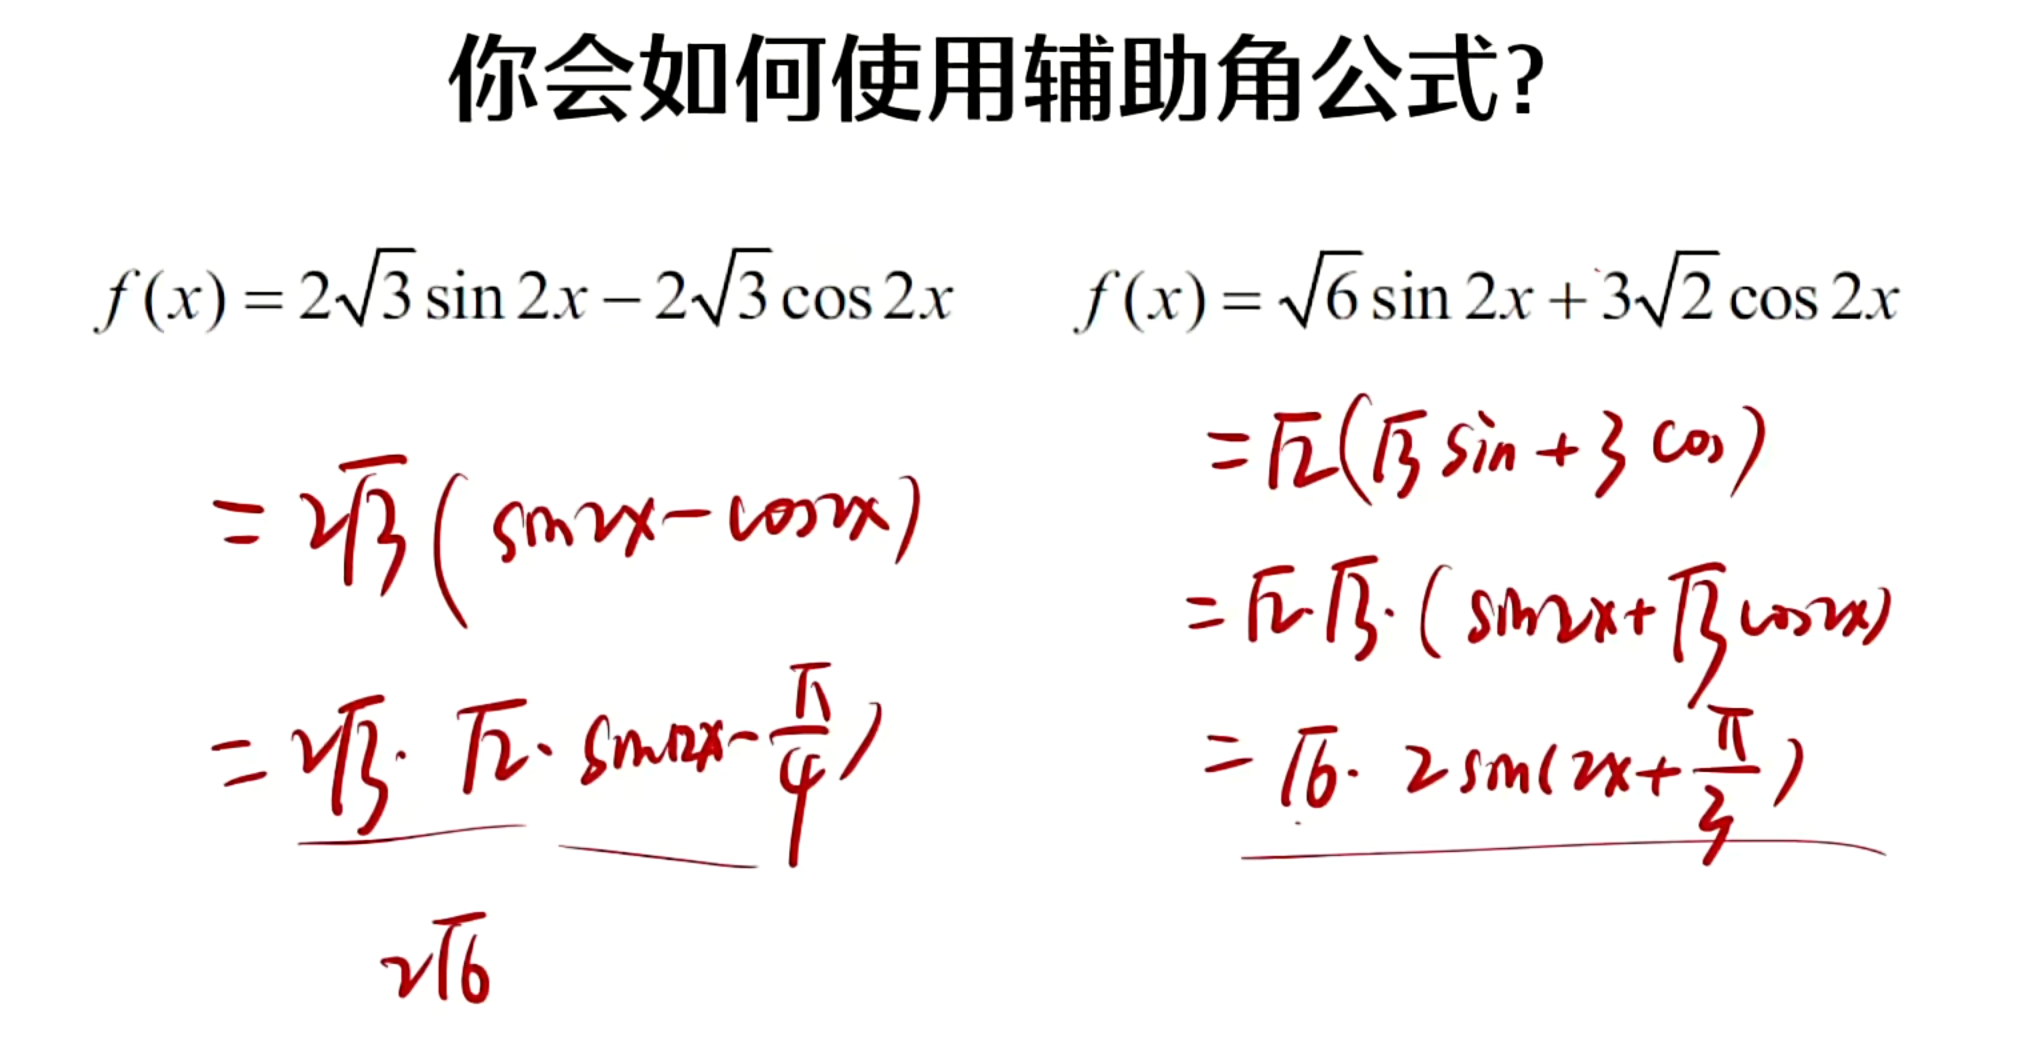 你会如何使用辅助角公式?
f(x)=2√3sin2x−2√3cos2x
=2√3(sin2x−cos2x)
=2√3·√2·sin(2x−π/4)
2√6
f(x)=√6sin2x+3√2cos2x
=√2(√3sin+3cos)
=√2·√3·(sin2x+√3cos2x)
=√6·2sin(2x+π/3)